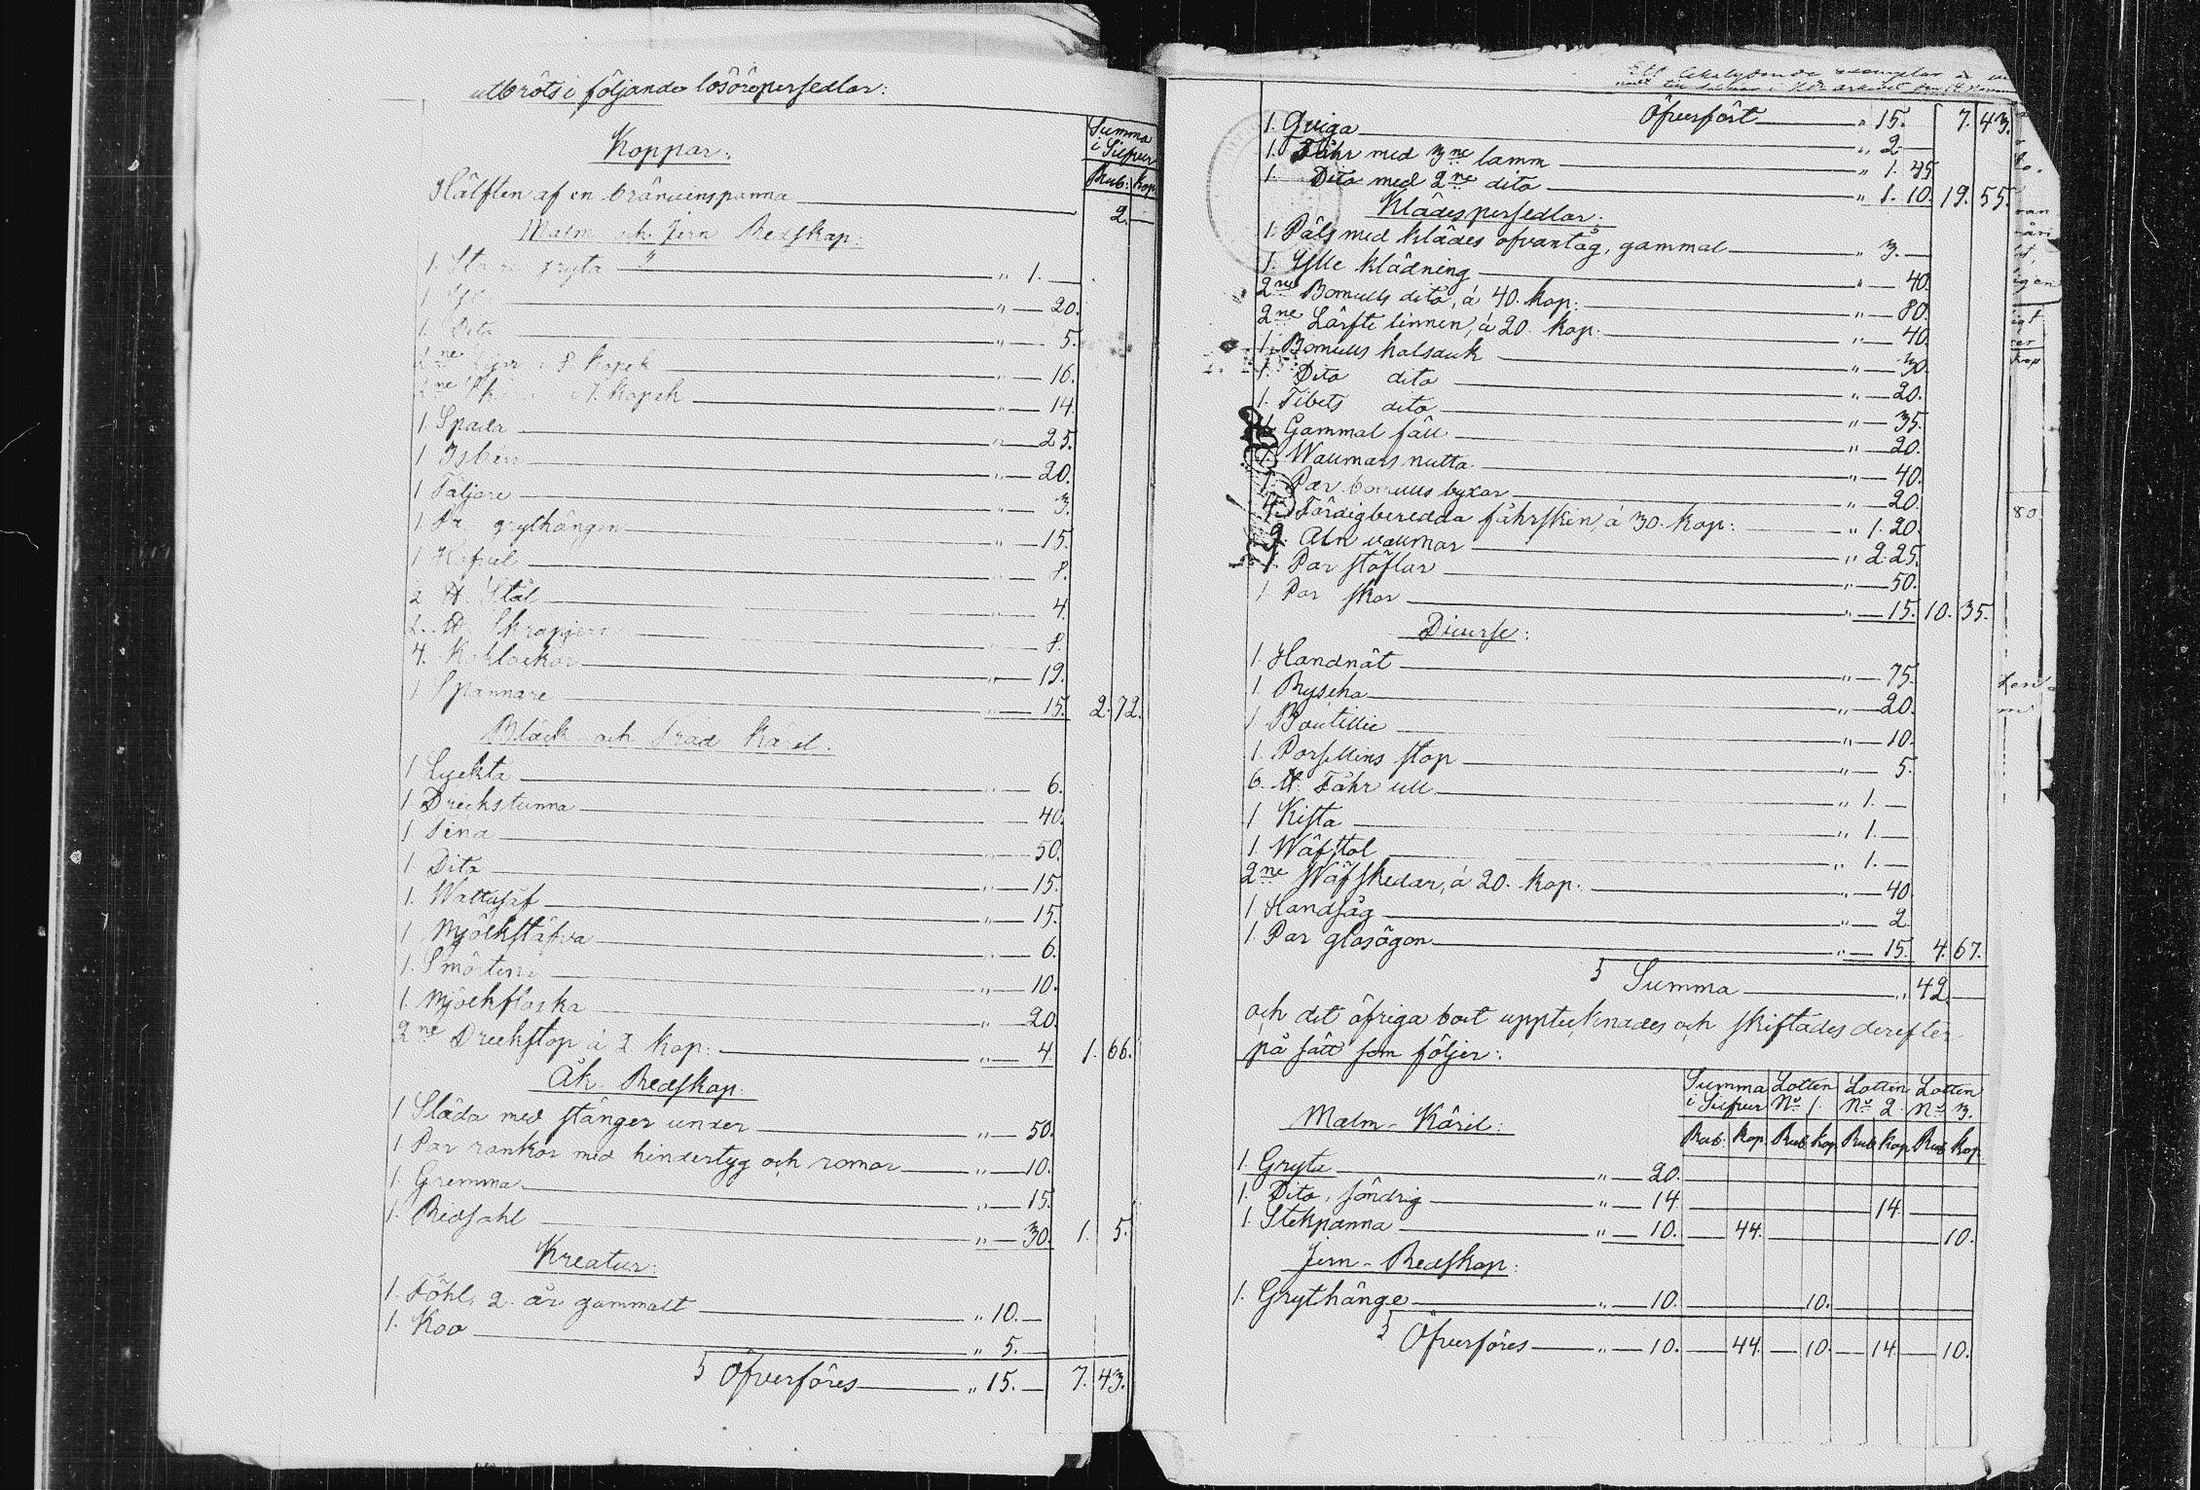 utbröts i följande lösörepersedlar:
Summa i Silfver
Koppar:
Rub: Kop
Hälften af en bränvinspanna 2. —
Malm och Jern Redskap:
1. Stor gryta " 1. —
1 " — 20.
1. Dito " — 5.
2ne 8 Kopek " — 16.
2ne 7. Kopek " — 14.
1 Spada " — 25.
1 Isbill " — 20.
1 Täljare " — 3.
1 Pr grythängen " — 15.
1 — 8.
2 ℔ Stål " — 4.
2. ℔ Skrapjern " — 8.
4. Koklockor " — 19.
1 Spannare " — 15. 2. 72.
Bläck och Träd Käril:
1 Lyckta " — 6.
1 Drickstunna " — 40.
1 Tina " — 50.
1 Dito " — 15.
1. Wattusåf " — 15.
1 Mjölkstäfva " — 6.
1. Smörtina " — 10.
1. Mjölkflaska " — 20.
2ne Drickstop á 2 Kop: " — 4. 1. 66.
Åk-Redskap.
1 Släda med stänger under " — 50.
1 Par rankor med hindertyg och romor " — 10.
1. Gremma " — 15.
1. Redsahl " — 30. 1. 5.
Kreatur:
1. Föhl, 2. år gammalt " 10. —
1. Koo " 5. —
Öfverföres " 15. — 7. 43.
Öfverfört " 15. — 7. 43.
1. Qviga " 2 —
1. Fåhr med 3ne lamm " 1. 45
1. Dito med 2ne dito " 1. 10. 19. 55.
Klädespersedlar:
1. Päls med klädes ofvantåg, gammal " 3. —
1. Ylle klädning " — 40.
2ne Bomulls dito, á 40. Kop: " — 80.
2ne Lärfts linnen, á 20. Kop. " — 40.
1. Bomulls halsduk " — 30.
1. Dito dito " — 20.
1. Tibets dito " — 35.
1. Gammal fäll " — 20.
1. Wallmars mutta " — 40.
1. Par bomulls byxor " — 20.
4. Färdigberedda fåhrskin, á 30. Kop: " 1. 20.
9. Aln vallmar " 2. 25.
1. Par stöflar " — 50.
1 Par skor " — 15. 10. 35.
Diverse:
1. Handnät " — 75.
1. Ryscha " — 20.
1 Boutillie " — 10.
1. Porsillins stop " — 5.
6. ℔. Fåhr ull " 1. —
1 Kista " 1. —
1. Wäfstol " 1. —
2ne Wäfskedar, á 20. Kop. " — 40.
1 Handsåg " — 2
1. Par glasögon " — 15. 4. 67.
Summa " 42 —
och det öfriga bort upptecknades och skiftades derefter
på sätt som följer:
Summa i Silfver Lotten No 1. Lotten No 2. Lotten No 3.
Malm-Käril:
Rub. Kop. Rub. Kop. Rub. Kop. Rub. Kop.
1. Gryta " — 20.
1. Dito, söndrig " — 14. 14.
1. Stekpanna " — 10. 44. 10.
Jern-Redskap:
1. Grythänge " — 10. 10.
Öfverföres " — 10. 44. 10. 14. 10.